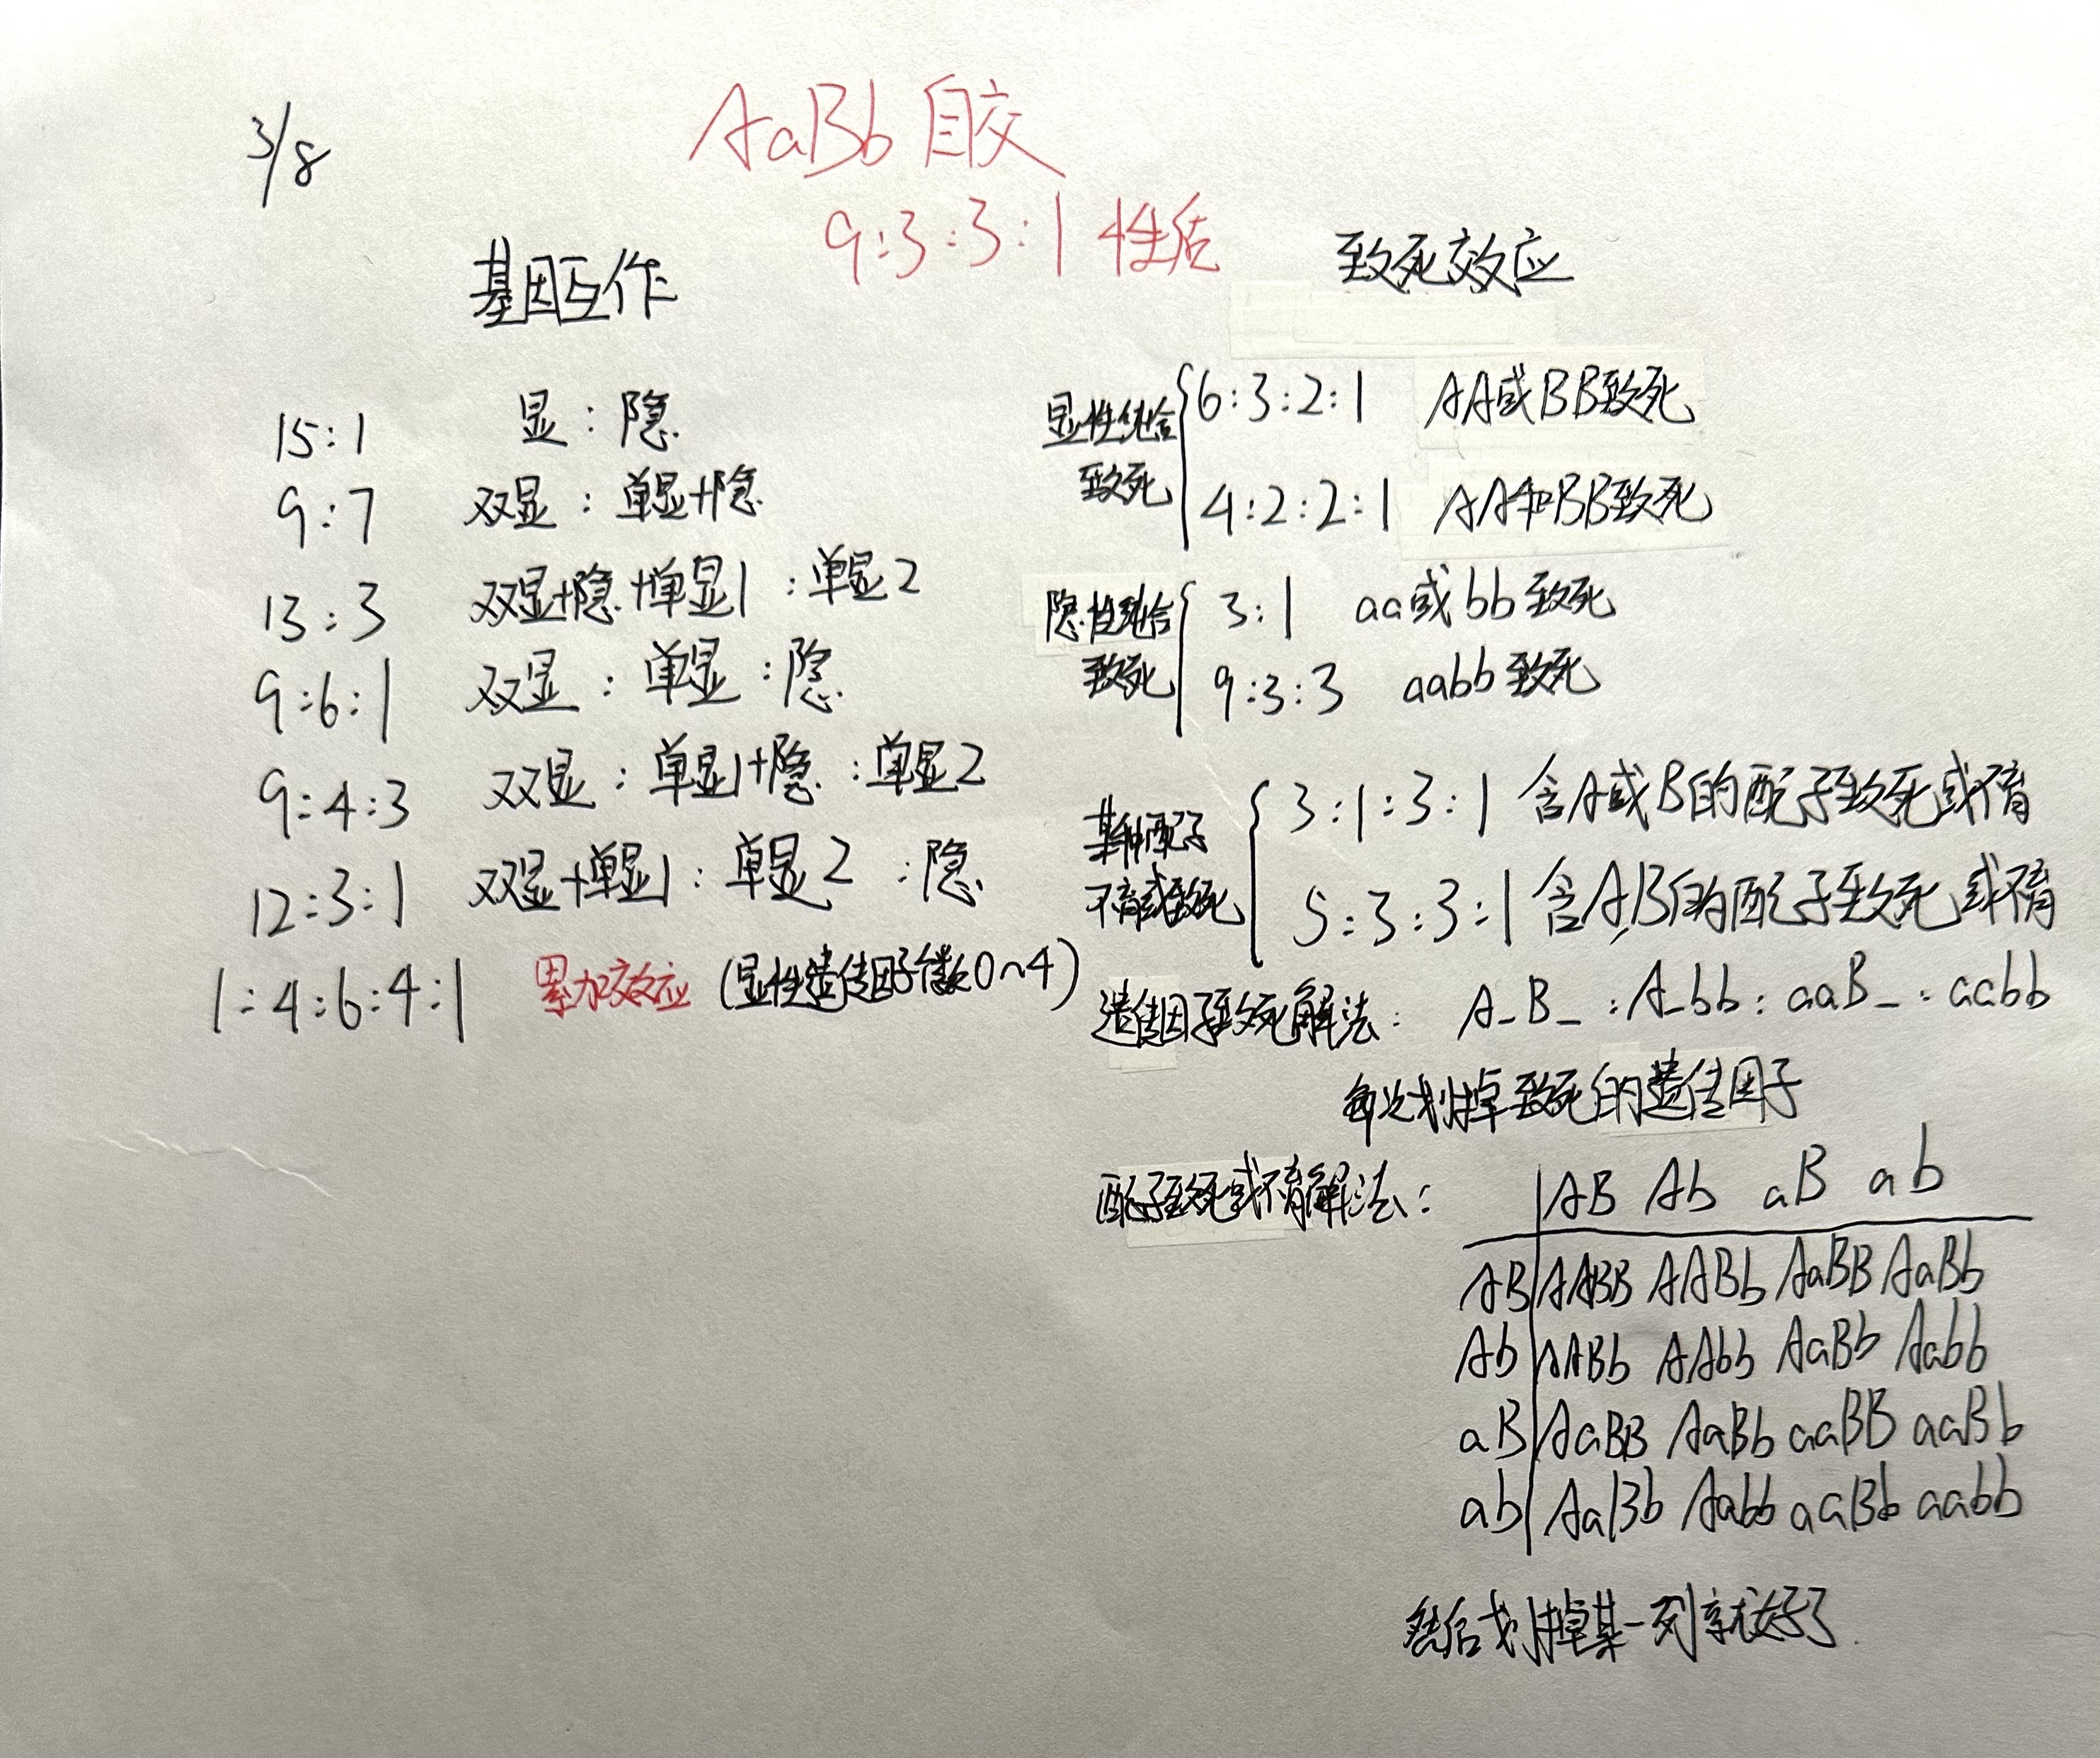 3/8
AaBb 自交
9:3:3:1 性活
基因互作
15:1 显:隐
9:7 双显:单显+隐
13:3 双显+隐+单显1:单显2
9:6:1 双显:单显:隐
9:4:3 双显:单显1+隐:单显2
12:3:1 双显+单显1:单显2:隐
1:4:6:4:1 累加效应(显性遗传因子个数0~4)
致死效应
显性纯合
致死
6:3:2:1 AA或BB致死
4:2:2:1 AA和BB致死
隐性纯合
致死
3:1 aa或bb致死
9:3:3 aabb致死
某种配子
不育或致死
3:1:3:1 含A或B的配子致死或不育
5:3:3:1 含AB的配子致死或不育
遗传因子致死解法: A_B_:A_bb:aaB_:aabb
每次划掉致死的遗传因子
配子致死或不育解法:
AB Ab aB ab
AB AABB AABb AaBB AaBb
Ab AABb AAbb AaBb Aabb
aB AaBB AaBb aaBB aaBb
ab AaBb Aabb aaBb aabb
然后划掉某一列就好了.